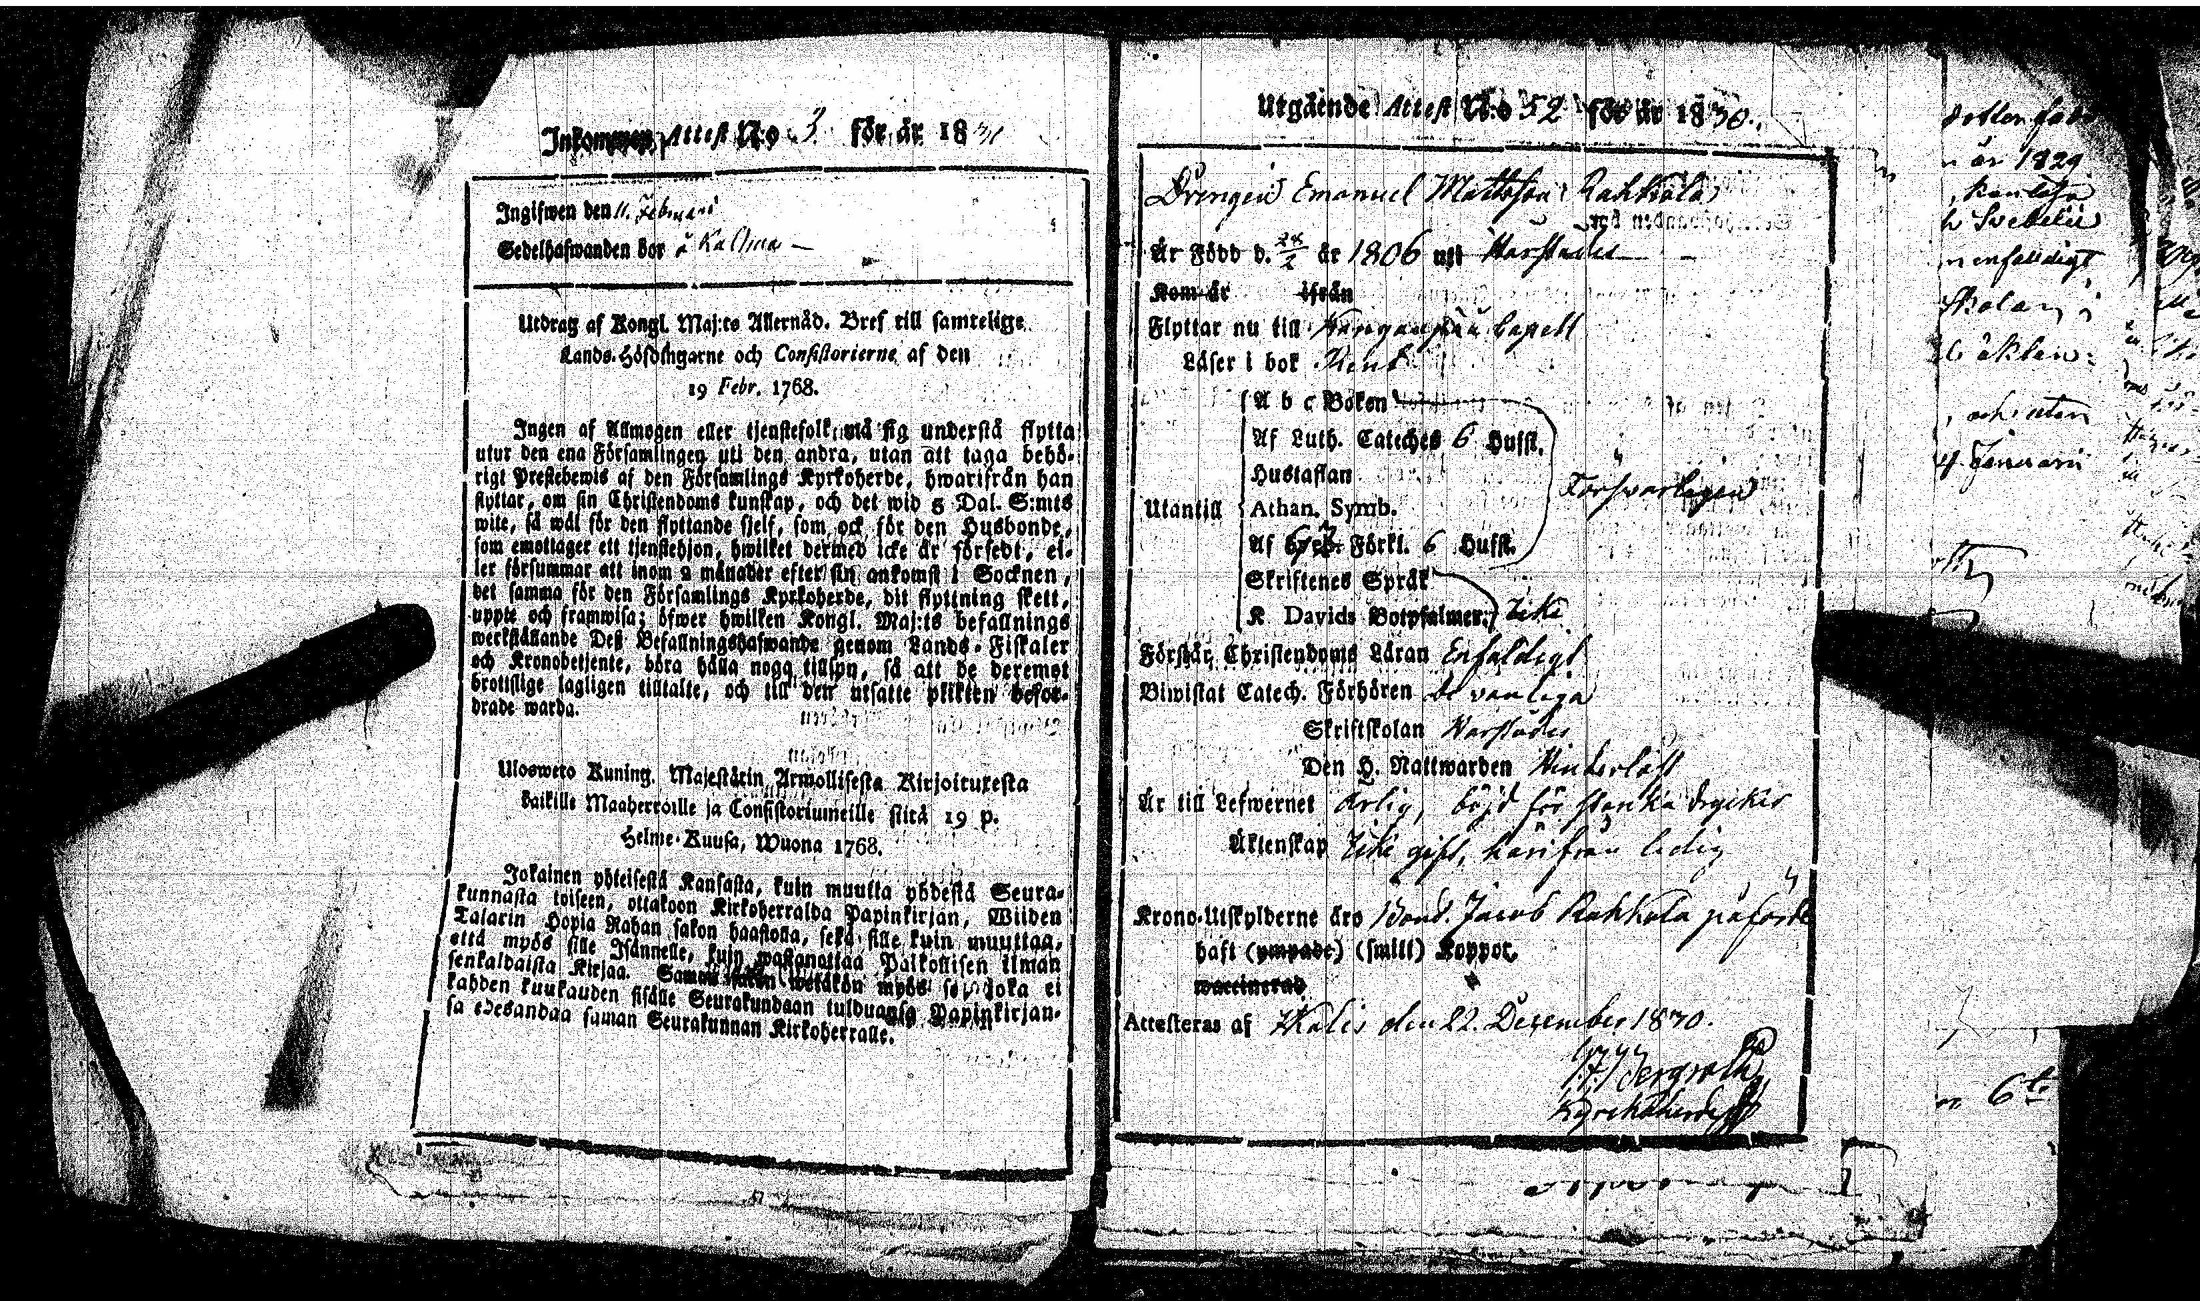 Inkommen Attest N:o 3. för år 1831
Ingifwen den 11. Februari
Sedelhafwanden bor å Kallma —
Utdrag af Kongl. Maj:ts Allernåd. Bref till samtelige
Lands-Höfdingarne och Consistorierne af den
19 Febr. 1768.
Ingen af Allmogen eller tjenstefolk må sig understå flytta
utur den ena Församlingen uti den andra, utan att taga behö-
rigt Prestebewis af den Församlings Kyrkoherde, hwarifrån han
flyttar, om sin Christendoms kunskap, och det wid 5 Dal. S:mts
wite, så wäl för den flyttande sjelf, som ock för den Husbonde,
som emottager ett tjenstehjon, hwilket dermed icke är försedt, el-
ler försummar att inom 2 månader efter sin ankomst i Socknen,
det samma för den Församlings Kyrkoherde, dit flyttning skett,
uppte och framwisa; öfwer hwilken Kongl. Maj:ts befallnings
werkställande Deß Befallningshafwande genom Lands-Fiskaler
och Kronobetjente, böra hålla noga tillsyn, så att de deremot
brottslige lagligen tilltalte, och till den utsatte plikten befor-
drade warda.
Ulosweto Kuning. Majestätin Armollisesta Kirjoituxesta
kaikille Maaherroille ja Consistoriumeille siitä 19 p.
Helme-Kuusa, Wuona 1768.
Jokainen yhteisestä Kansasta, kuin muutta yhdestä Seura-
kunnasta toiseen, ottakoon Kirkoherralda Papinkirjan, Wiiden
Talarin Hopia Rahan sakon haastolla, sekä sille kuin muuttaa,
että myös sille Isännelle, kuin wastanottaa Palkollisen ilman
senkaldaista Kirjaa. Saman sakon wetäkön myös se, joka ei
kahden kuukauden sisälle Seurakundaan tulduansa Papinkirjan-
sa edesandaa saman Seurakunnan Kirkoherralle.
Utgående Attest N:o 52 för år 1830.
Drengen Emanuel Mattsson Rahkola
Är Född d. 28/2 år 1806 uti Harstades
Kom år ifrån
Flyttar nu till Kanganpää Capell
Läser i bok Rent
A b c Boken
Af Luth. Cateches 6 Hufst.
Hustaflan
Utantill Athan. Symb.
Af Förkl. 6 Hufst.
Försvarligen
Skriftenes Språk
K Davids Botpsalmer. Icke
Förstår Christendoms Läran Enfaldigt
Biwistat Catech. Förhören de vanliga
Skriftskolan Harstades
Den H. Nattwarden Hinderlöst
Är till Lefwernet ärlig, böjd för starka drycker
Äktenskap Icke gift, härifrån ledig
Krono-Utskylderne äro Bond. Jacob Rahkola påförde
haft (ympade) (smitt) Koppor.
waccinerad
Attesteras af Walis den 22. December 1830.
Bergroth
Kyrckoherde
n år 1829
n enfaldigt
skolan i
och uten
Januarii
6t